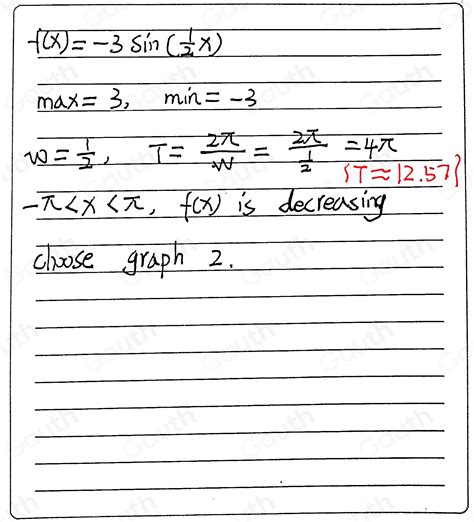 f(x) = -3 sin(½x)
max = 3, min = -3
w = ½, T = 2π/w = 2π/½ = 4π
{T ≈ 12.57}
-π < x < π, f(x) is decreasing
choose graph 2.